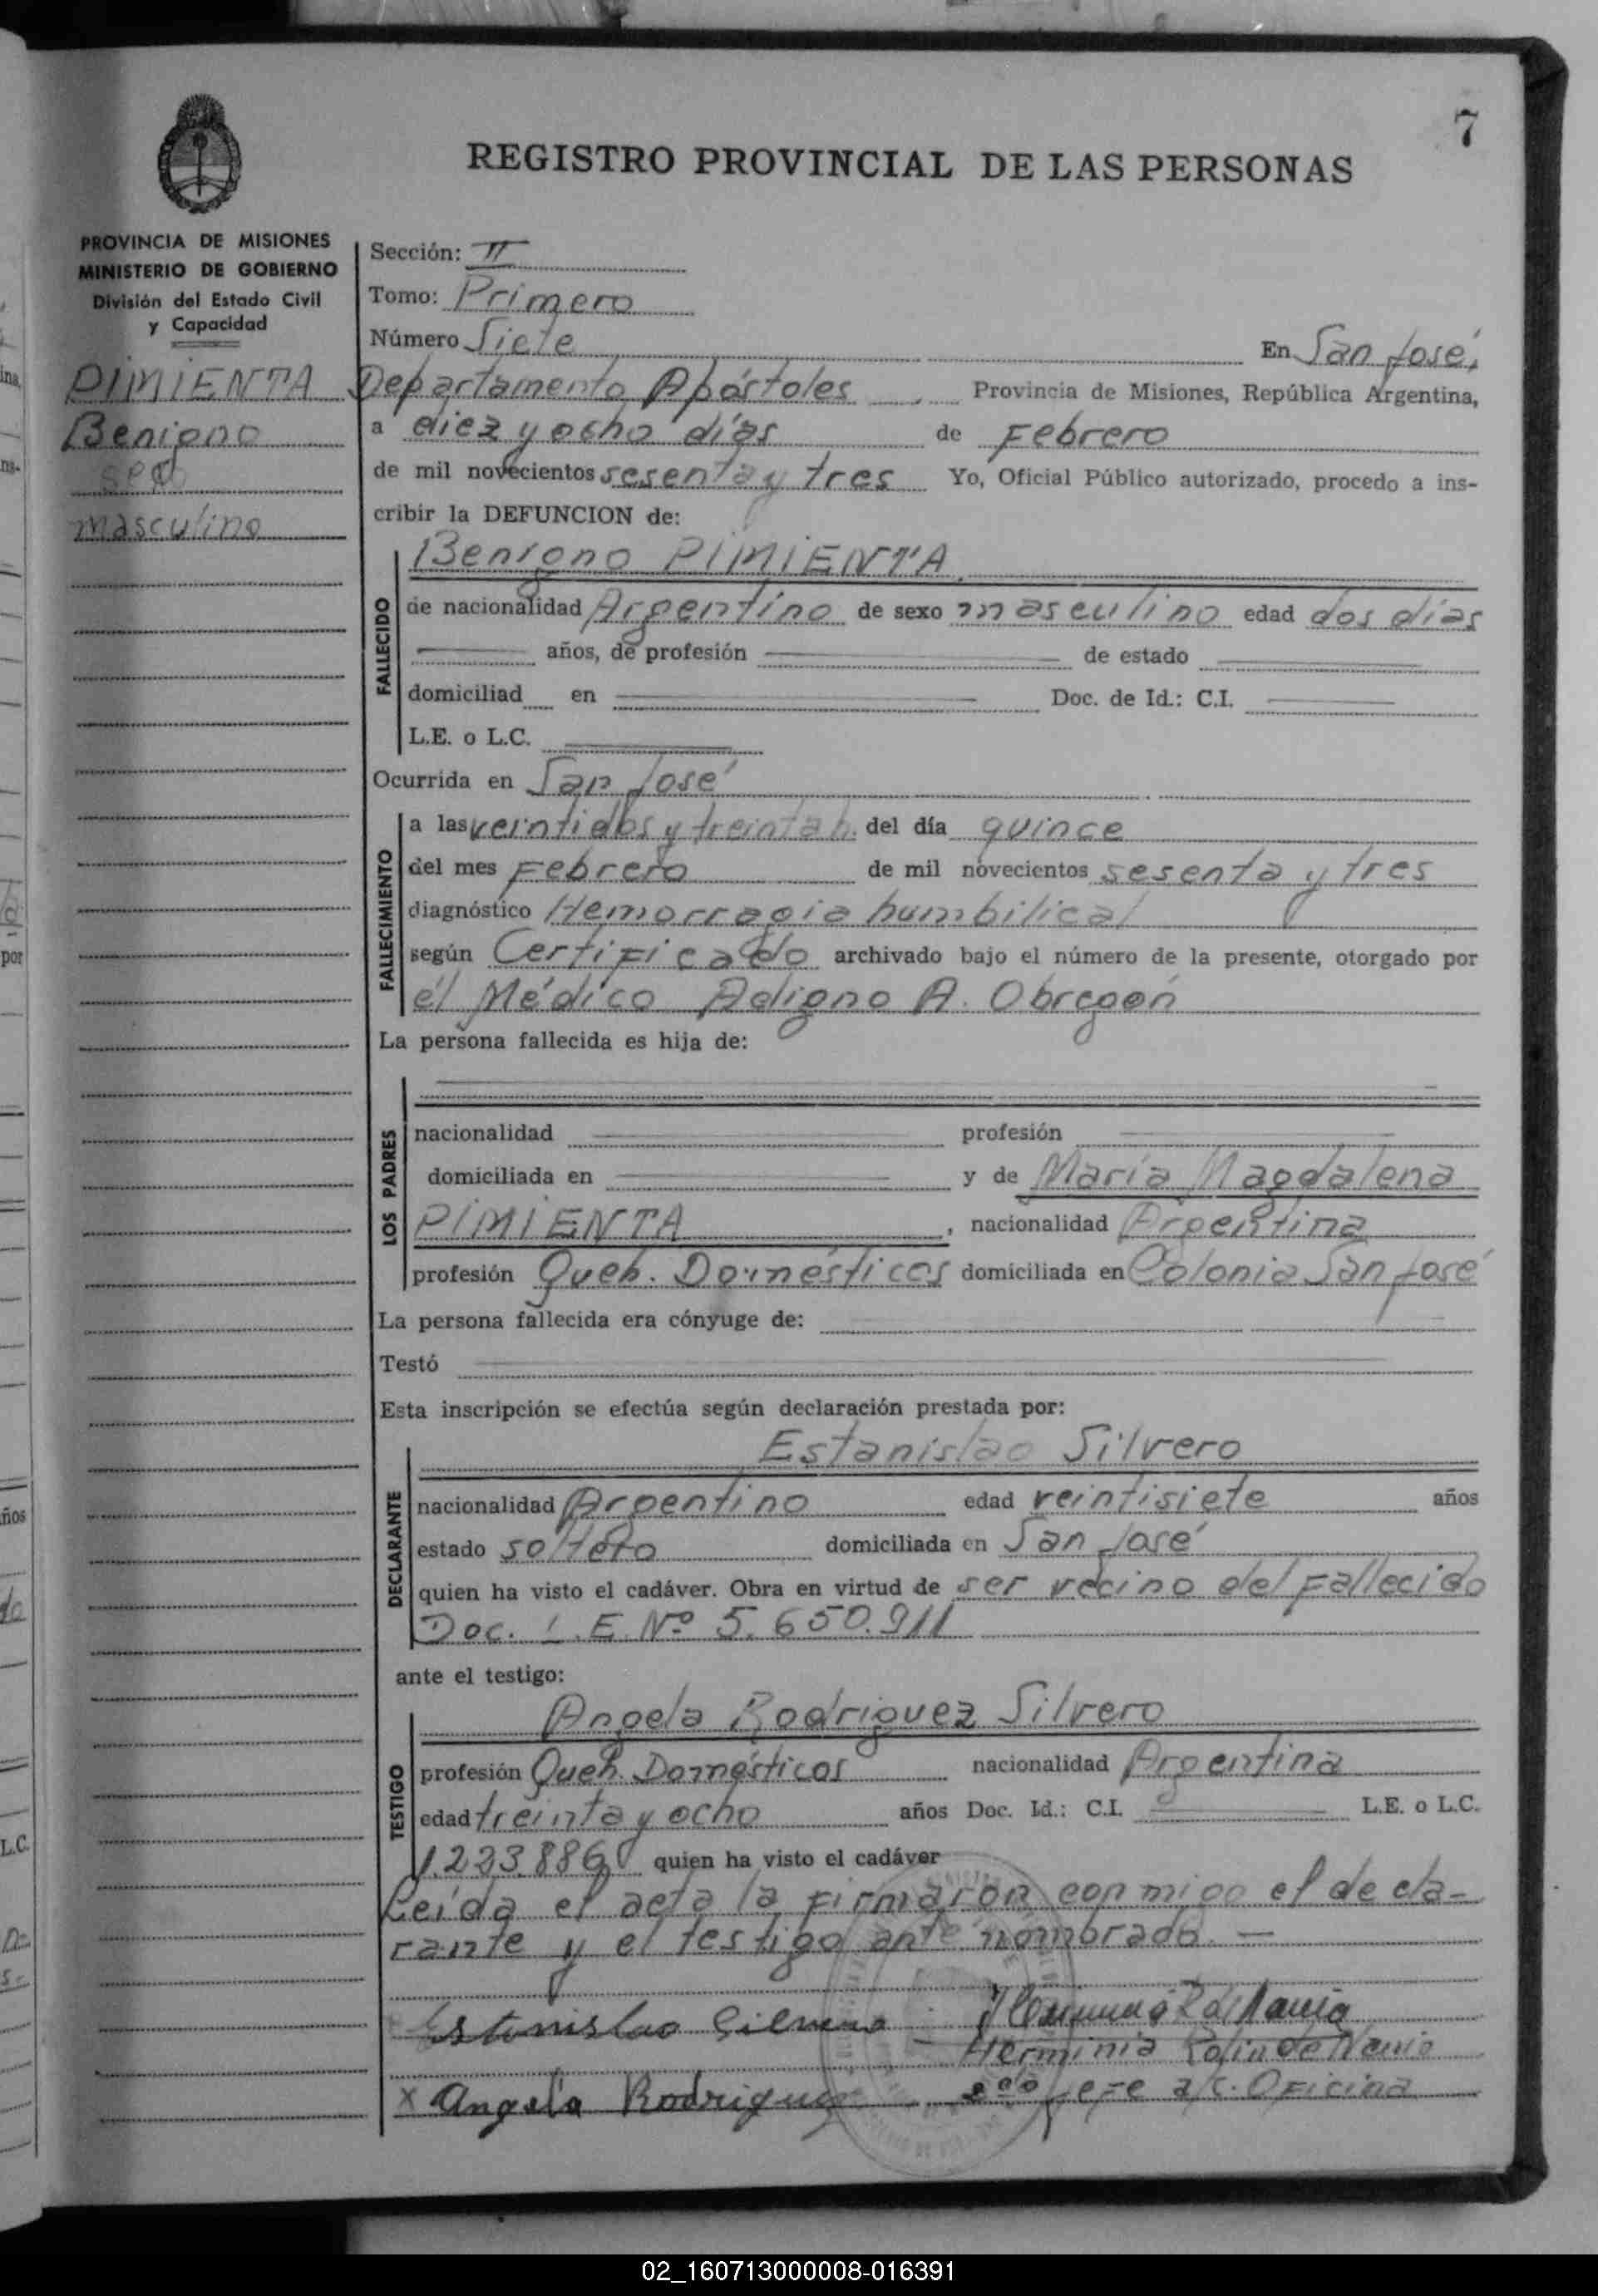 7
REGISTRO PROVINCIAL DE LAS PERSONAS
PROVINCIA DE MISIONES
MINISTERIO DE GOBIERNO
División del Estado Civil
y Capacidad
PIMIENTA
Benigno
sexo
masculino
Sección: II
Tomo: Primero
Número Siete En San José,
Departamento Apóstoles, Provincia de Misiones, República Argentina,
a diez y ocho días de Febrero
de mil novecientos sesenta y tres Yo, Oficial Público autorizado, procedo a ins-
cribir la DEFUNCION de:
FALLECIDO
Benigno PIMIENTA
de nacionalidad Argentino de sexo masculino edad dos días
años, de profesión de estado
domiciliad en Doc. de Id.: C.I.
L.E. o L.C.
Ocurrida en San José
FALLECIMIENTO
a las veintidos y treinta h. del día quince
del mes Febrero de mil novecientos sesenta y tres
diagnóstico Hemorragia humbilical
según Certificado archivado bajo el número de la presente, otorgado por
él Médico Adigno A. Obregón
La persona fallecida es hija de:
LOS PADRES
nacionalidad profesión
domiciliada en y de María Magdalena
PIMIENTA, nacionalidad Argentina
profesión Queh. Domésticos domiciliada en Colonia San José
La persona fallecida era cónyuge de:
Testó
Esta inscripción se efectúa según declaración prestada por:
DECLARANTE
Estanislao Silvero
nacionalidad Argentino edad veintisiete años
estado soltero domiciliada en San José
quien ha visto el cadáver. Obra en virtud de ser vecino del fallecido
Doc. L.E. Nº 5.650.911
ante el testigo:
TESTIGO
Angela Rodriguez Silvero
profesión Queh. Domésticos nacionalidad Argentina
edad treinta y ocho años Doc. Id.: C.I. L.E. o L.C.
1.223.886 quien ha visto el cadáver
Leída el acta la firmaron conmigo el decla-
rante y el testigo ante nombrado. —
Estanislao Silvero
Herminia
X Angela Rodriguez Jefe a/c. Oficina
02_160713000008-016391